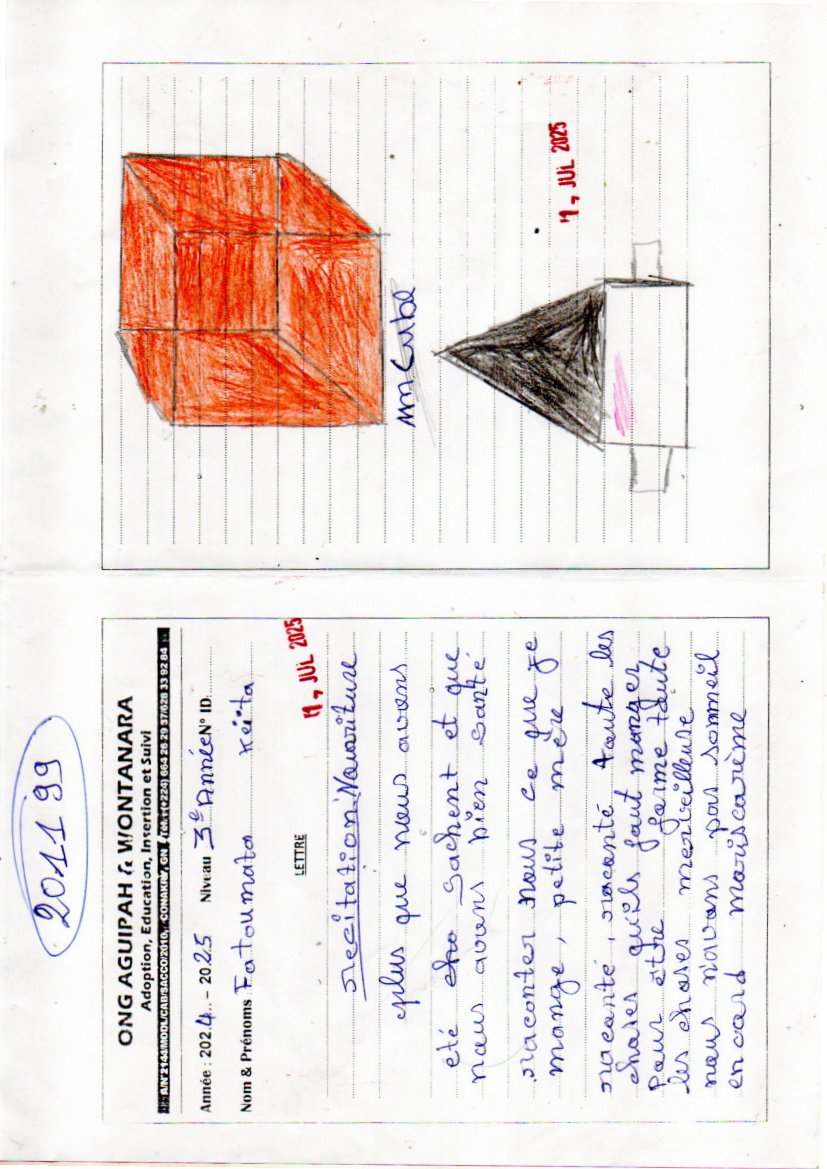 2011 99
ONG AGUIPAH & WONTANARA
Adoption, Education, Insertion et Suivi
Année : 2024 - 2025 Niveau 3e Année N° ID
Nom & Prénoms Fatoumata Keïta
LETTRE
17, JUL 2025
recitation Nourriture
plus que nous avons
été sachent et que
nous avons bien santé
raconter nous ce que je
mange, petite mère
raconté, raconté toute les
choses qu'ils faut manger
Pour être forme toute
les choses merveilleuse
nous n'avons pas sommeil
encord mariscarème
un Cube
17, JUL 2025